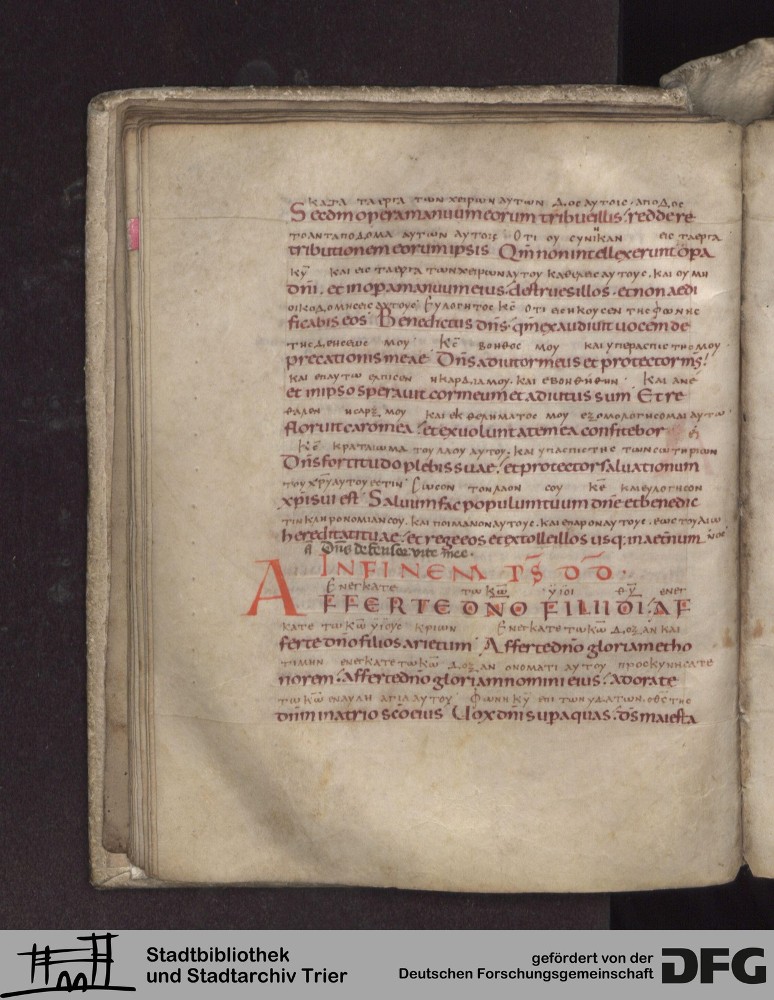 ΚΑΤΑ ΤΑ ΕΡΓΑ ΤΩΝ ΧΕΙΡΩΝ ΑΥΤΩΝ ΔΟC ΑΥΤΟΙC · ΑΠΟΔΟC
Secdm opera manuum eorum tribue illis · redde re
ΤΟ ΑΝΤΑΠΟΔΟΜΑ ΑΥΤΩΝ ΑΥΤΟΙC ΟΤΙ ΟΥ CΥΝΗΚΑΝ ΕΙC ΤΑ ΕΡΓΑ
tributionem eorum ipsis Qm̅ non intellexerunt opa
ΚΥ̅ ΚΑΙ ΕΙC ΤΑ ΕΡΓΑ ΤΩΝ ΧΕΙΡΩΝ ΑΥΤΟΥ ΚΑΘΕΛΕΙC ΑΥΤΟΥC · ΚΑΙ ΟΥ ΜΗ
dn̅i · et in opa manuum eius · destrues illos · et non aedi
ΟΙΚΟΔΟΜΗCΕΙC ΑΥΤΟΥC ΕΥΛΟΓΗΤΟC ΚC̅ ΟΤΙ ΕΙCΗΚΟΥCΕΝ ΤΗC ΦΩΝΗC
ficabis eos Benedictus dn̅s · qm̅ exaudiuit uocem de
ΤΗC ΔΕΗCΕΩC ΜΟΥ ΚC̅ ΒΟΗΘΟC ΜΟΥ ΚΑΙ ΥΠΕΡΑCΠΙCΤΗC ΜΟΥ
precationis meae Dn̅s adiutor meus et protector ms̅
ΚΑΙ ΕΠ ΑΥΤΩ ΕΛΠΙCΕΝ Η ΚΑΡΔΙΑ ΜΟΥ · ΚΑΙ ΕΒΟΗΘΗΘΗΝ · ΚΑΙ ΑΝΕ
et in ipso sperauit cor meum et adiutus sum Et re
ΘΑΛΕΝ Η CΑΡΞ ΜΟΥ ΚΑΙ ΕΚ ΘΕΛΗΜΑΤΟC ΜΟΥ ΕΞΟΜΟΛΟΓΗCΟΜΑΙ ΑΥΤΩ
floruit caro mea · et ex uoluntate mea confitebor ei
ΚC̅ ΚΡΑΤΑΙΩΜΑ ΤΟΥ ΛΑΟΥ ΑΥΤΟΥ · ΚΑΙ ΥΠΑCΠΙCΤΗC ΤΩΝ CΩΤΗΡΙΩΝ
Dn̅s fortitudo plebis suae · et protector saluationum
ΤΟΥ ΧΡΥ̅ ΑΥΤΟΥ ΕCΤΙΝ CΩCΟΝ ΤΟΝ ΛΑΟΝ CΟΥ ΚΕ̅ ΚΑΙ ΕΥΛΟΓΗCΟΝ
xp̅i sui est Saluum fac populum tuum dn̅e et benedic
ΤΗΝ ΚΛΗΡΟΝΟΜΙΑΝ CΟΥ · ΚΑΙ ΠΟΙΜΑΝΟΝ ΑΥΤΟΥC · ΚΑΙ ΕΠΑΡΟΝ ΑΥΤΟΥC · ΕΩC ΤΟΥ ΑΙΩ
hereditati tuae · et rege eos et extolle illos usq; in aeternum ΝΟC
a Dn̅s defensor vite mee ·
IN FINEM PS̅ DD̅ ·
ΕΝΕΓΚΑΤΕ ΤΩ ΚΩ̅ ΥΙΟΙ ΘΥ̅ ΕΝΕΓ
AFFERTE DN̅O FILII DI̅ · AF
ΚΑΤΕ ΤΩ ΚΩ̅ ΥΙΟΥC ΚΡΙΩΝ ΕΝΕΓΚΑΤΕ ΤΩ ΚΩ̅ ΔΟΞΑΝ ΚΑΙ
ferte dn̅o filios arietum Afferte dn̅o gloriam et ho
ΤΙΜΗΝ ΕΝΕΓΚΑΤΕ ΤΩ ΚΩ̅ ΔΟΞΑΝ ΟΝΟΜΑΤΙ ΑΥΤΟΥ ΠΡΟCΚΥΝΗCΑΤΕ
norem · Afferte dn̅o gloriam nomini eius · adorate
ΤΩ ΚΩ̅ ΕΝ ΑΥΛΗ ΑΓΙΑ ΑΥΤΟΥ ΦΩΝΗ ΚΥ̅ ΕΠΙ ΤΩΝ ΥΔΑΤΩΝ · Ο ΘC̅ ΤΗC
dn̅m in atrio sc̅o eius Uox dn̅i sup aquas · ds̅ maiesta
Stadtbibliothek
und Stadtarchiv Trier
gefördert von der
Deutschen Forschungsgemeinschaft
DFG